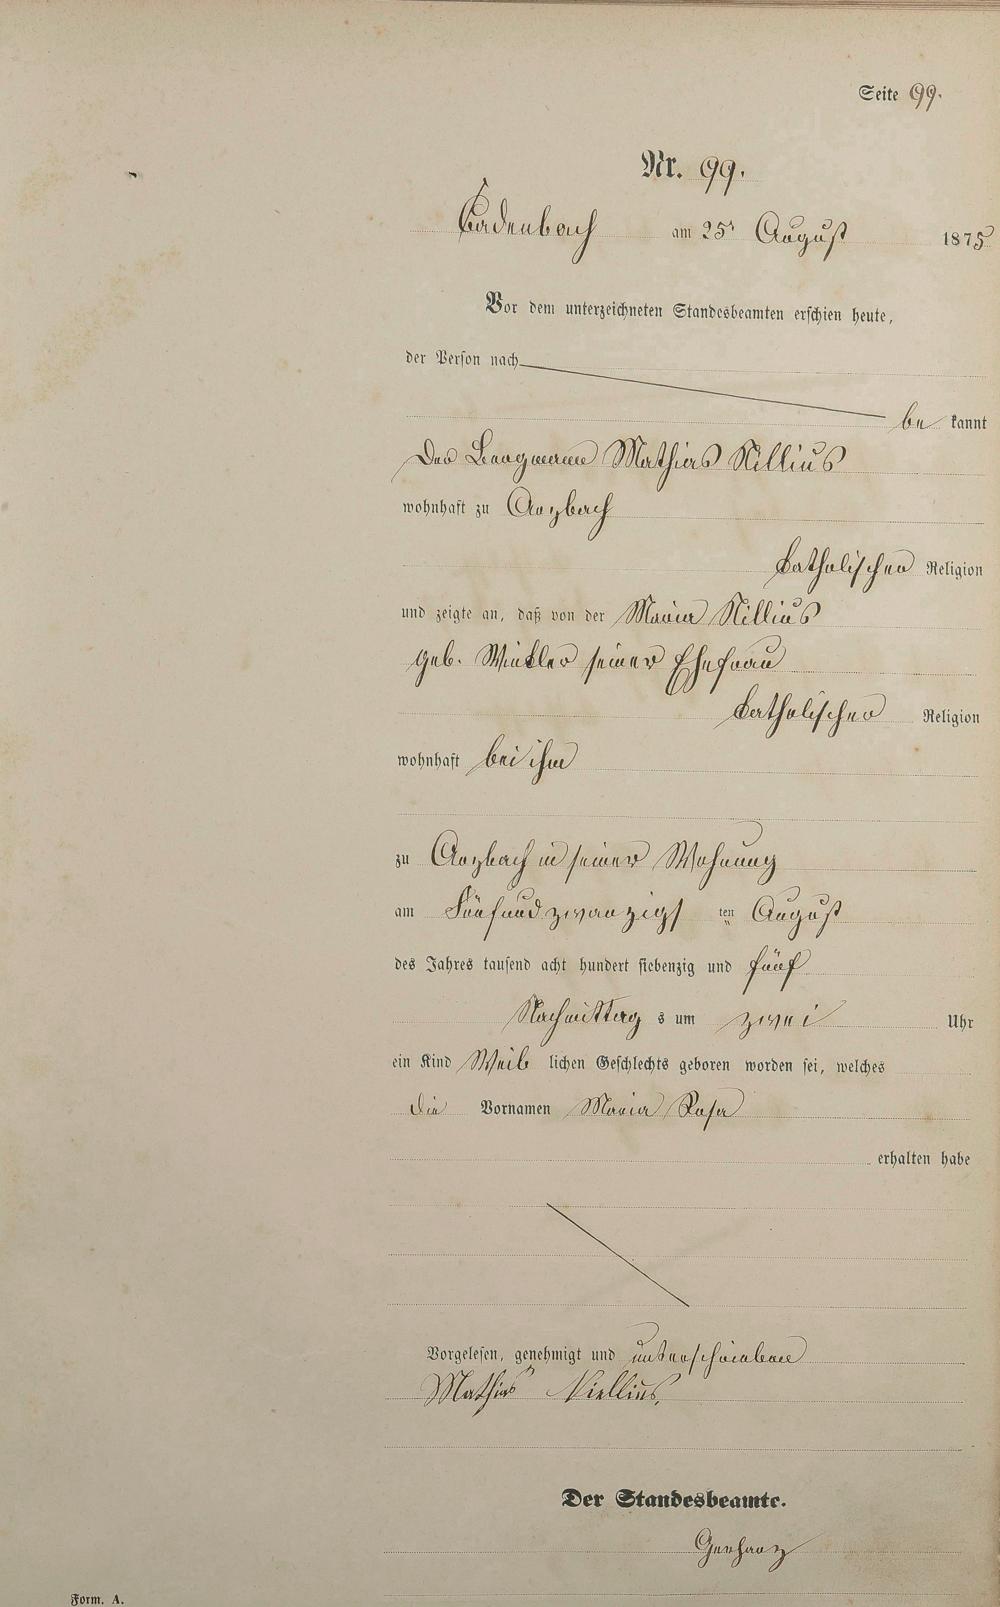 Seite 99.
Nr. 99.
Cadenbach am 25. August 1875
Vor dem unterzeichneten Standesbeamten erschien heute,
der Person nach
be kannt
Der Bergmann Mathias Killius
wohnhaft zu Arzbach
katholischer Religion
und zeigte an, daß von der Maria Killius
geb. Winkler seiner Ehefrau
katholischer Religion
wohnhaft bei ihm
zu Arzbach in seiner Wohnung
am Fünfundzwanzigs ten August
des Jahres tausend acht hundert siebenzig und fünf
Nachmittag s um zwei Uhr
ein Kind Weib lichen Geschlechts geboren worden sei, welches
die Vornamen Maria Rosa
erhalten habe
Vorgelesen, genehmigt und unterschrieben
Mathias Kiellius.
Der Standesbeamte.
Gerharz
Form. A.